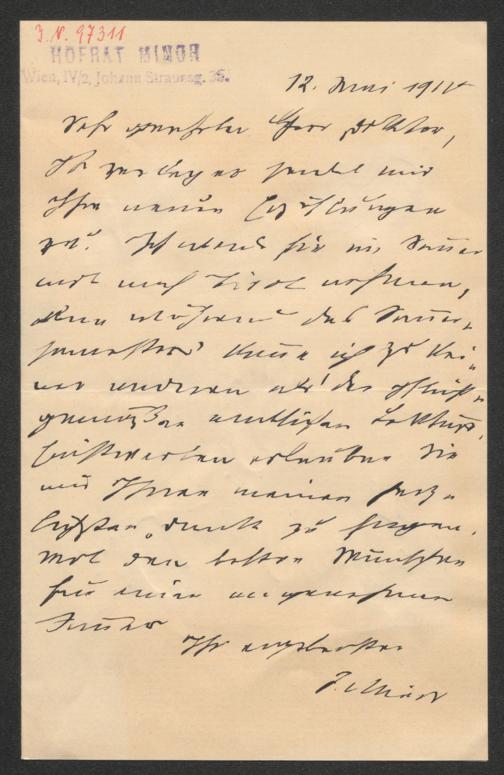 I. N. 97311
HOFRAT MINOR
Wien, IV/2, Johann Straussg. 36.
12. Mai 1911
Sehr geehrter Herr Doktor,
Ihr Verleger sendet mir
Ihre neuen Erzählungen
zu. Ich werde sie im Sommer
mit nach Tirol nehmen,
denn während des Sommer-
semesters komme ich zu kei-
ner anderen als der pflicht-
gemäßen amtlichen Lektüre.
Einstweilen erlauben Sie
mir Ihnen meinen herz-
lichsten Dank zu sagen.
Mit den besten Wünschen
für einen angenehmen
Sommer
Ihr ergebenster
J. Minor